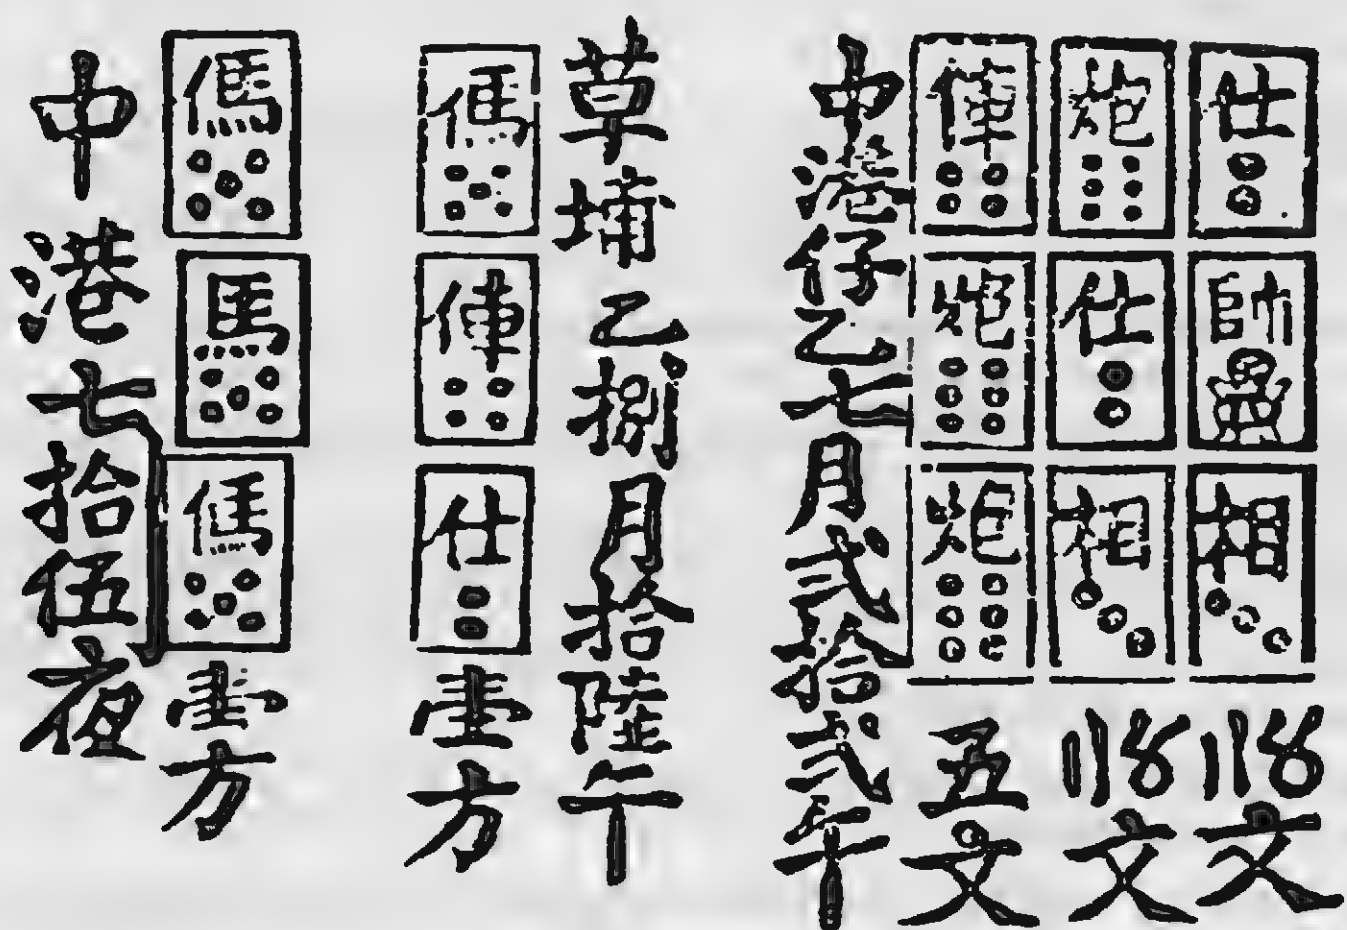 仕帥相〢〥文
炮仕相〢〥文
俥炮炮五文
中港仔乙七月弍拾弍午
草埔乙捌月拾陸午
傌俥仕壹方
傌馬傌壹方
中港七拾伍夜